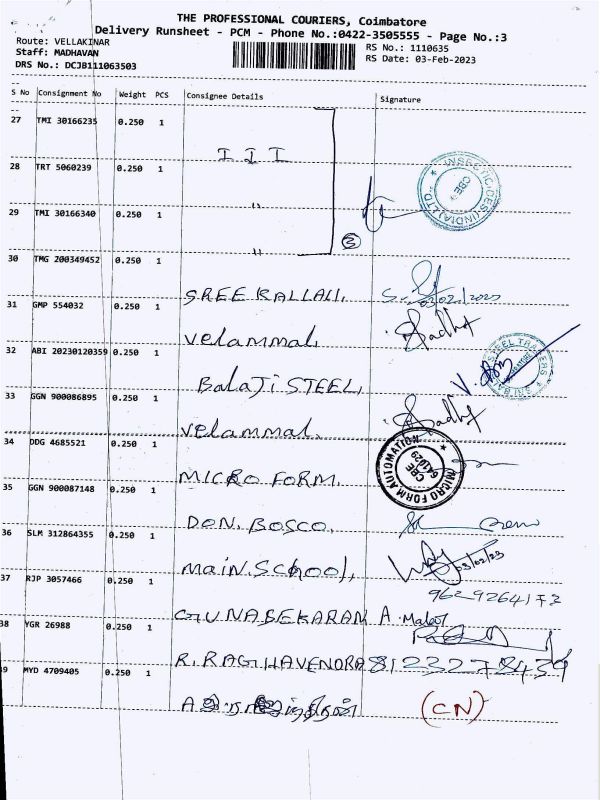 THE PROFESSIONAL COURIERS, Coimbatore
Delivery Runsheet - PCM - Phone No.:0422-3505555 - Page No.:3
Route: VELLAKINAR
RS No.: 1110635
Staff: MADHAVAN
RS Date: 03-Feb-2023
DRS No.: DCJB111063503
S No Consignment No Weight PCS Consignee Details Signature
27 TMI 30166235 0.250 1
I I I
28 TRT 5060239 0.250 1
"
29 TMI 30166340 0.250 1
" 3
INSECTICIDES (INDIA) LTD. CBE
30 TMG 200349452 0.250 1
SREE KALLALI, 03/02/2023
31 GMP 554032 0.250 1
velammal,
32 ABI 20230120359 0.250 1
BalaJi STEEL,
STEEL TRADERS
33 GGN 900086895 0.250 1
velammal.
34 DDG 4685521 0.250 1
MICRO FORM.
MICRO FORM AUTOMATION CBE 641029
35 GGN 900087148 0.250 1
DON. BOSCO,
36 SLM 312864355 0.250 1
main.School, 03/02/23
37 RJP 3057466 0.250 1
GUNASEKARAN A
38 YGR 26988 0.250 1
R. RAGHAVENDRA 8123278439
39 MYD 4709405 0.250 1
(CN)